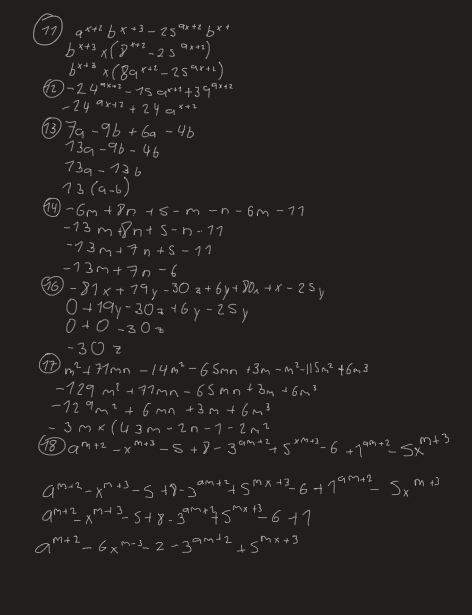 11 a^{x+2} b^{x+3} - 25^{ax+2} b^{x+
b^{x+3} x (8^{x+2} - 25^{ax+2})
b^{x+3} x (8a^{x+2} - 25^{ax+2})
12 -24^{ax+2} - 15a^{x+1} + 39^{ax+2}
-24^{ax+2} + 24a^{x+2}
13 7a - 9b + 6a - 4b
13a - 9b - 4b
13a - 13b
13 (a-b)
14 -6m + 8n + 5 - m - n - 6m - 11
-13m + 8n + 5 - n - 11
-13m + 7n + 5 - 11
-13m + 7n - 6
16 -81x + 19y - 30z + 6y + 80x + x - 25y
0 + 19y - 30z + 6y - 25y
0 + 0 - 30z
-30z
17 m² + 71mn - 14m² - 65mn + 3m - m² - 115m² + 6m³
-129m² + 71mn - 65mn + 3m + 6m³
-129m² + 6mn + 3m + 6m³
-3m x (43m - 2n - 1 - 2m²
18 a^{m+2} - x^{m+3} - 5 + 8 - 3^{am+2} + 5^{xm+3} - 6 + 1^{am+2} - 5x^{m+3}
a^{m+2} - x^{m+3} - 5 + 8 - 3^{am+2} + 5^{mx+3} - 6 + 1^{am+2} - 5x^{m+3}
a^{m+2} - x^{m+3} - 5 + 8 - 3^{am+2} + 5^{mx+3} - 6 + 1
a^{m+2} - 6x^{m-3} - 2 - 3^{am+2} + 5^{mx+3}